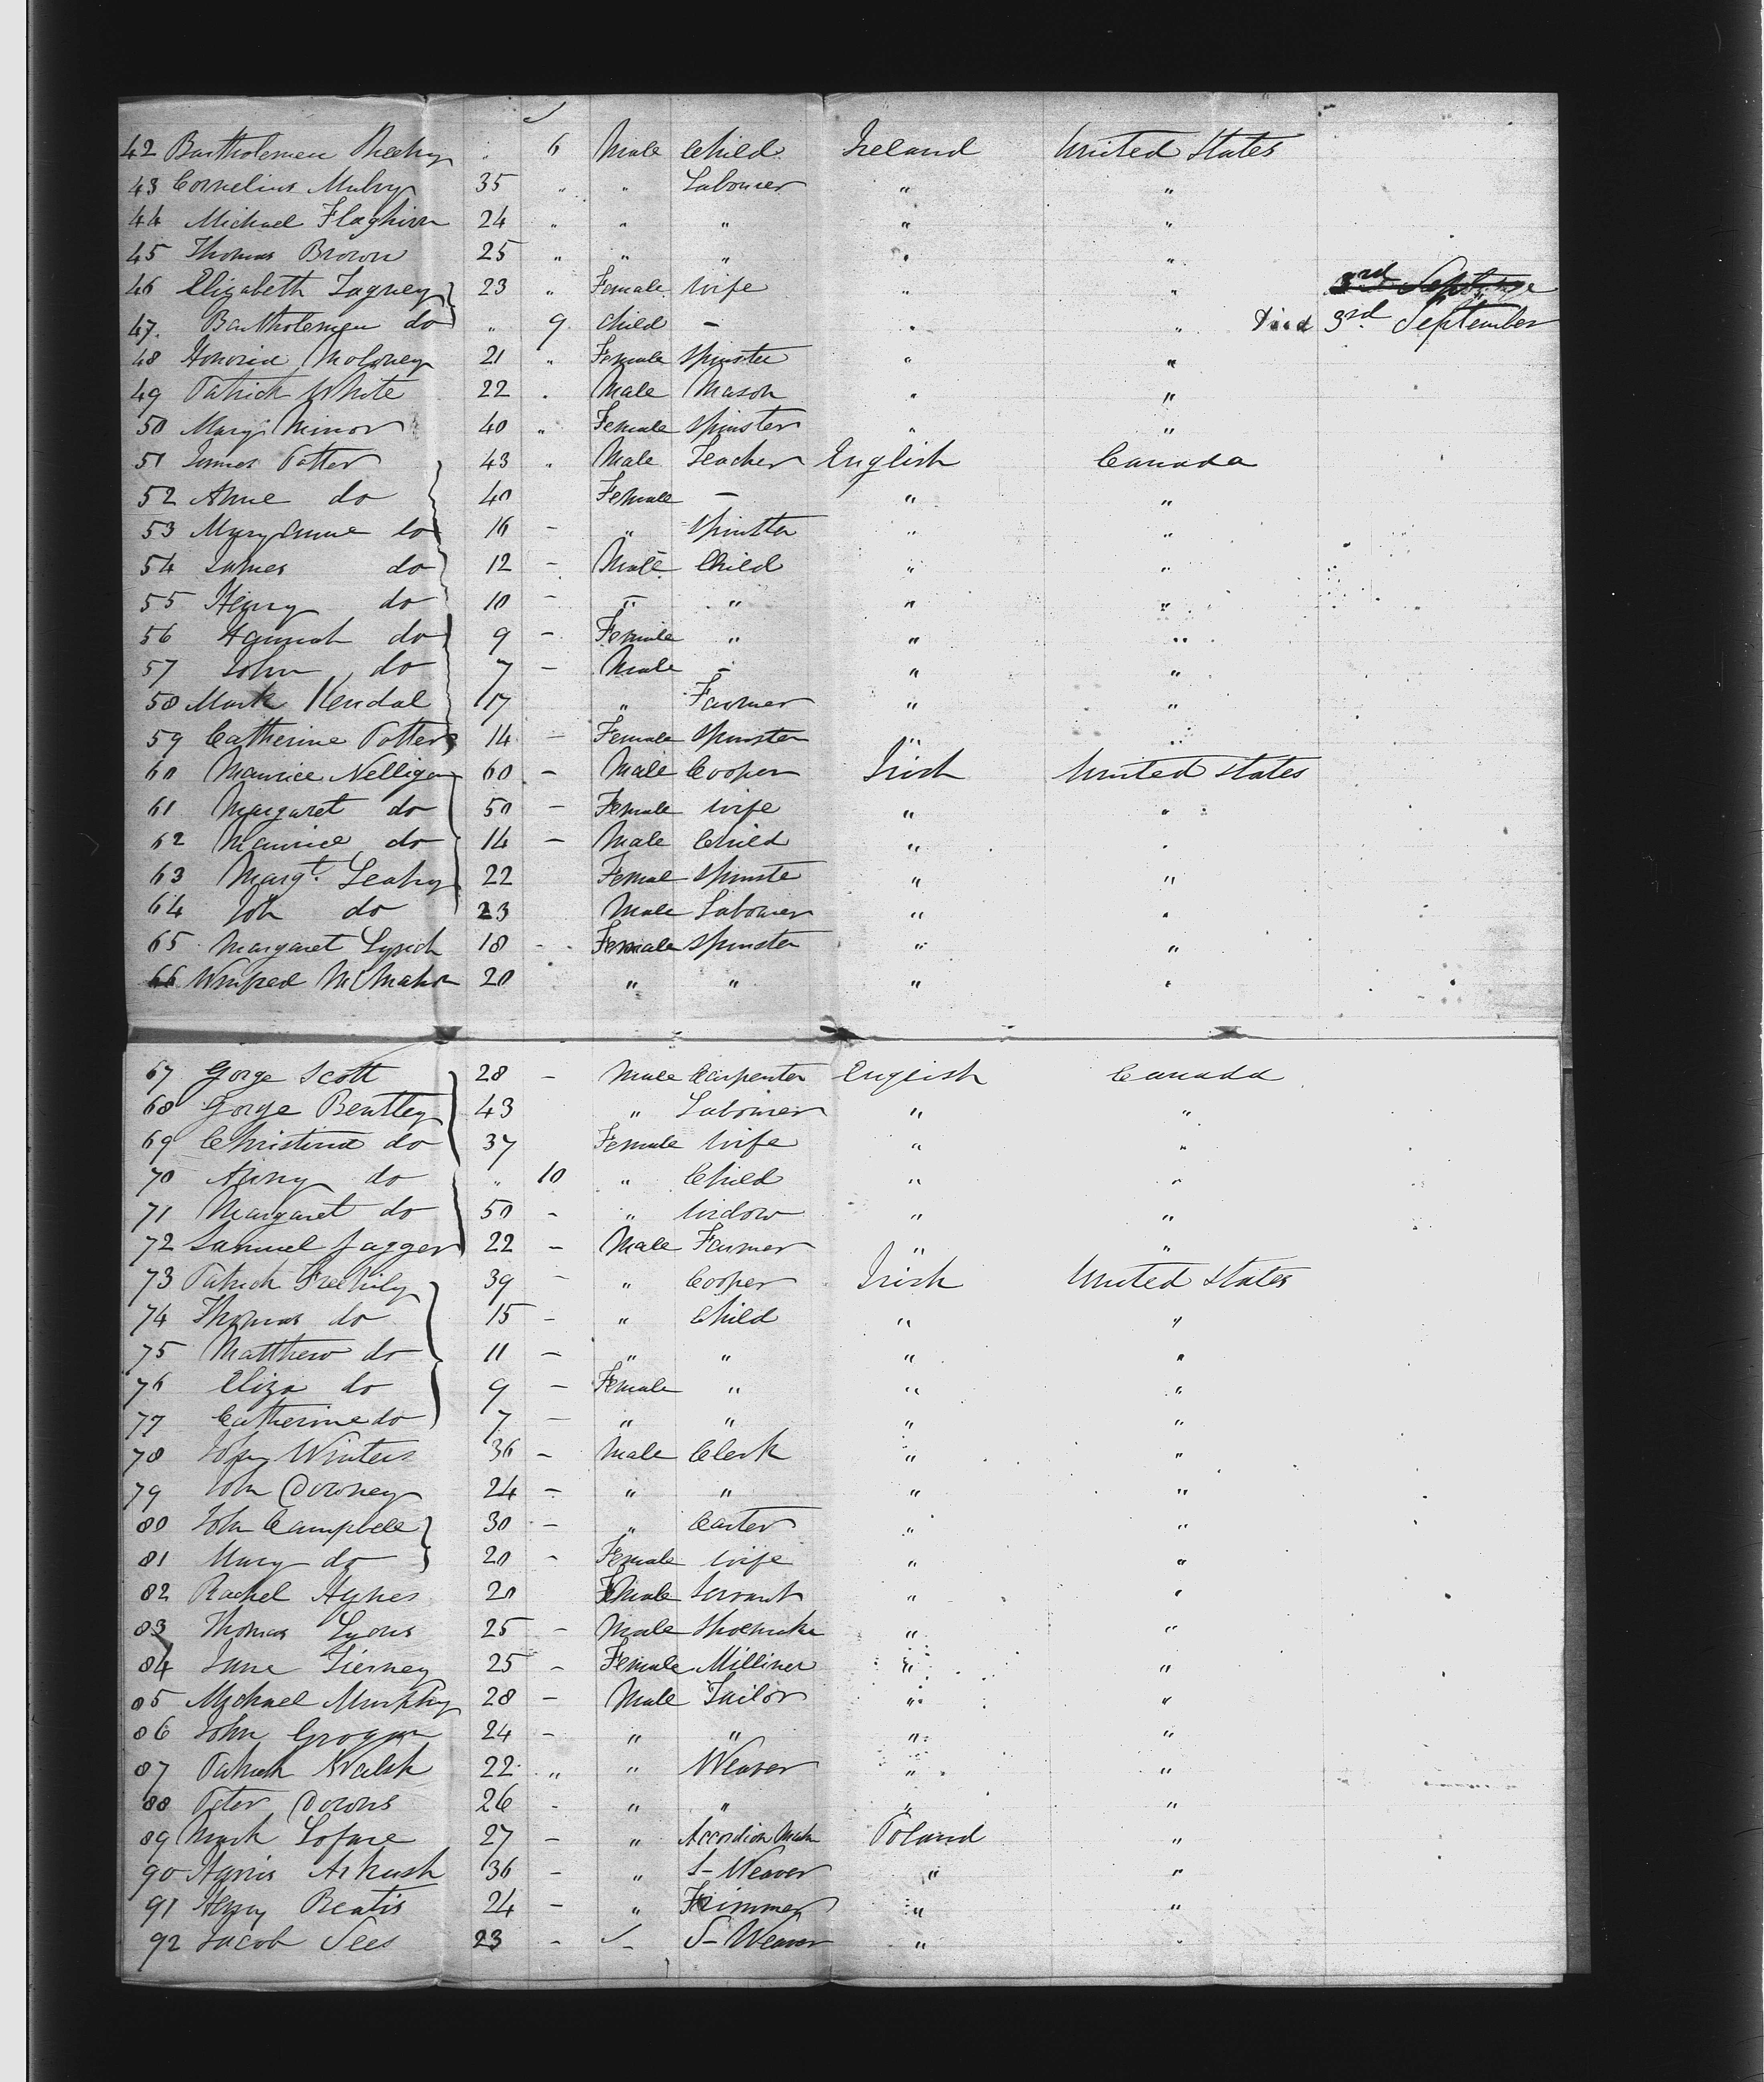 42 Bartholemew Sheehy " 6 Male Child Ireland United States
43 Cornelius Mulvy 35 " " Labourer " "
44 Michael Flaghivn 24 " " " " "
45 Thomas Brown 25 " " " " "
46 Elizabeth Tagney 23 " Female wife " " 3rd
47. Bartholemew do " 9 child – " " Died 3rd September
48 Honoria Moloney 21 " Female Spinster " "
49 Patrick White 22 . Male Mason " "
50 Mary Minor 40 " Female Spinster " "
51 James Potter 43 " Male Teacher English Canada
52 Anne do 40 Female – " "
53 Mary Anne do 16 – " Spinster " "
54 James do 12 – Male Child " "
55 Henry do 10 – " " " "
56 Hannah do 9 – Female " " "
57 John do 7 – Male – " "
58 Mark Kendal 17 " Farmer " "
59 Catherine Potter 14 – Female Spinster " "
60 Maurice Nelligan 60 – Male Cooper Irish United States
61 Margaret do 50 – Female wife " "
62 Maurice do 14 – Male Child " "
63 Margt. Leahy 22 Female Spinste " "
64 Joh do 23 Male Labourer " "
65 Margaret Lynch 18 – Female Spinster " "
66 Winfred McMahon 20 " " " "
67 Gorge Scott 28 – Male Carpenter English Canada
68 Gorge Bentley 43 " Labourer " "
69 Christina do 37 Female wife " "
70 do " 10 " Child " "
71 Margaret do 50 – " Widow " "
72 Samuel Jagger 22 – Male Farmer " "
73 Patrick Freehily 39 – " Cooper Irish United States
74 Thomas do 15 – " Child " "
75 Matthew do 11 – " " " "
76 Eliza do 9 – Female " " "
77 Catherine do 7 – " " " "
78 Winters 36 – Male Clerk " "
79 John Downey 24 – " " " "
80 John Campbell 30 – " Carter " "
81 Mary do 20 – Female wife " "
82 Rachel Hynes 20 Female Servant " "
83 Thomas Lyons 25 – Male Shoemaker " "
84 Jane Tierney 25 – Female Milliner " "
85 Michael Murphy 28 – Male Tailor " "
86 John Grogan 24 – " " " "
87 Patrick Walsh 22 " " Weaver " "
88 Peter Downs 26 – " " " "
89 Mark Lofare 27 – " Accordion Makr Poland "
90 Harris Arkush 36 – " S– Weaver " "
91 Henry Beatis 24 – " Trimmer " "
92 Jacob Sees 23 – – S– Weaver " "